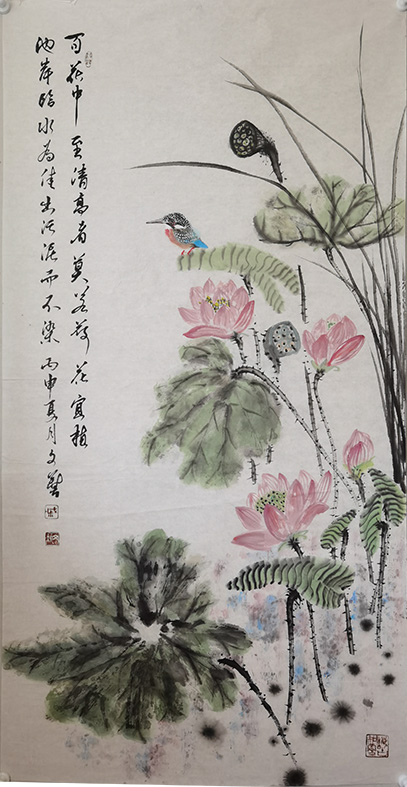 百花中至清高者莫若荷花宜植
池岸临水为佳出淤泥而不染丙申夏月文艺